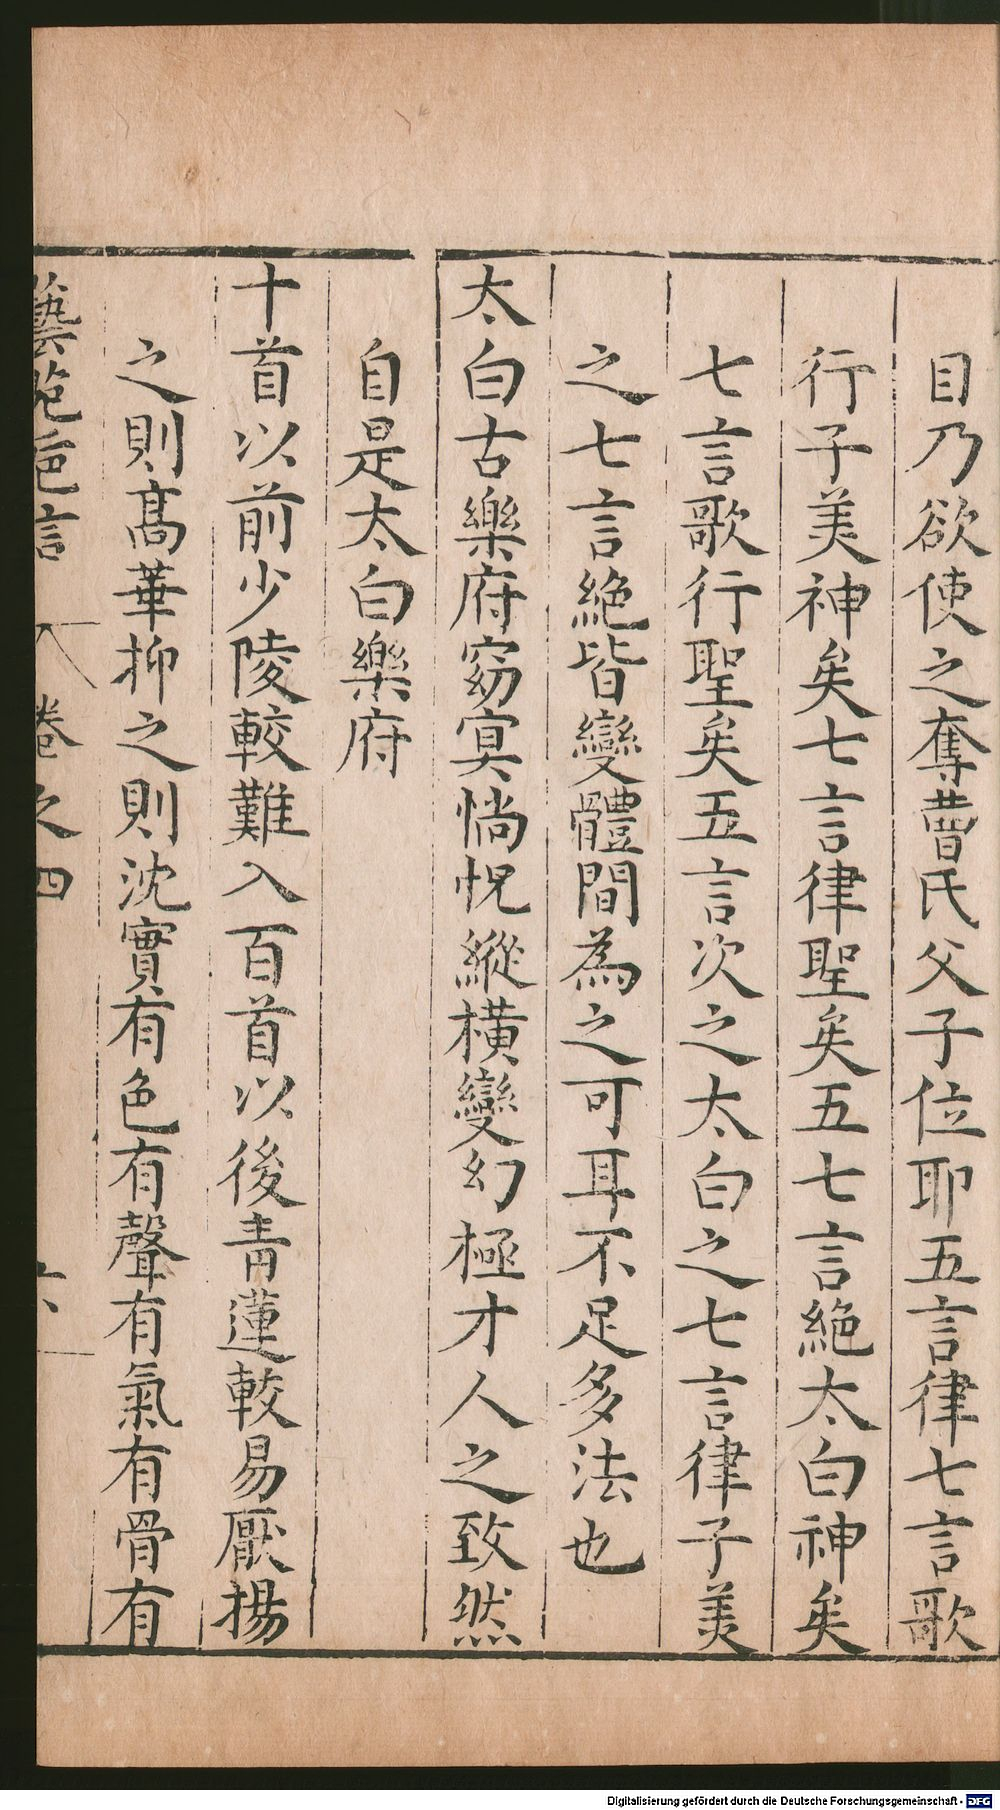 目乃欲使之奪曹氏父子位耶五言律七言歌
行子美神矣七言律聖矣五七言絶太白神矣
七言歌行聖矣五言次之太白之七言律子美
之七言絶皆變體間為之可耳不足多法也
太白古樂府窈冥惝怳縱橫變幻極才人之致然
自是太白樂府
十首以前少陵較難入百首以後青蓮較易厭揚
之則高華抑之則沈實有色有聲有氣有骨有
藝苑巵言 卷之四 六
Digitalisierung gefördert durch die Deutsche Forschungsgemeinschaft - DFG